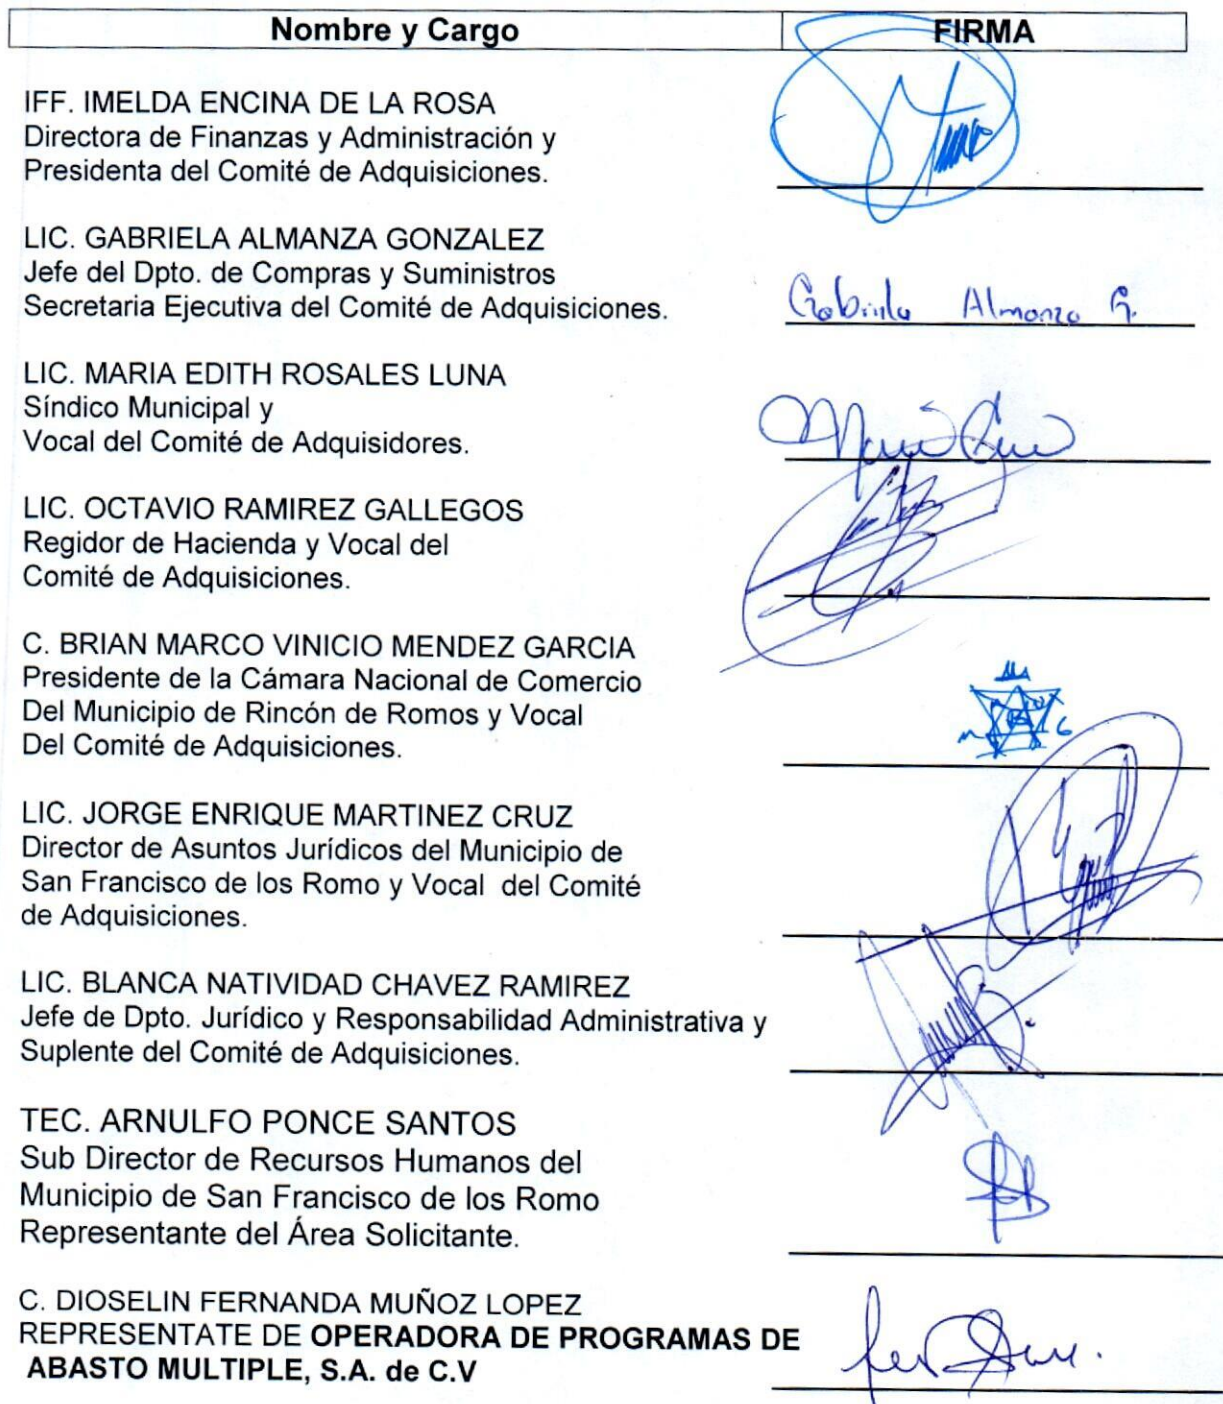 Nombre y Cargo FIRMA
IFF. IMELDA ENCINA DE LA ROSA
Directora de Finanzas y Administración y
Presidenta del Comité de Adquisiciones.
LIC. GABRIELA ALMANZA GONZALEZ
Jefe del Dpto. de Compras y Suministros
Secretaria Ejecutiva del Comité de Adquisiciones.
Gabriela Almanza G.
LIC. MARIA EDITH ROSALES LUNA
Síndico Municipal y
Vocal del Comité de Adquisidores.
LIC. OCTAVIO RAMIREZ GALLEGOS
Regidor de Hacienda y Vocal del
Comité de Adquisiciones.
C. BRIAN MARCO VINICIO MENDEZ GARCIA
Presidente de la Cámara Nacional de Comercio
Del Municipio de Rincón de Romos y Vocal
Del Comité de Adquisiciones.
LIC. JORGE ENRIQUE MARTINEZ CRUZ
Director de Asuntos Jurídicos del Municipio de
San Francisco de los Romo y Vocal del Comité
de Adquisiciones.
LIC. BLANCA NATIVIDAD CHAVEZ RAMIREZ
Jefe de Dpto. Jurídico y Responsabilidad Administrativa y
Suplente del Comité de Adquisiciones.
TEC. ARNULFO PONCE SANTOS
Sub Director de Recursos Humanos del
Municipio de San Francisco de los Romo
Representante del Área Solicitante.
C. DIOSELIN FERNANDA MUÑOZ LOPEZ
REPRESENTATE DE OPERADORA DE PROGRAMAS DE
ABASTO MULTIPLE, S.A. de C.V